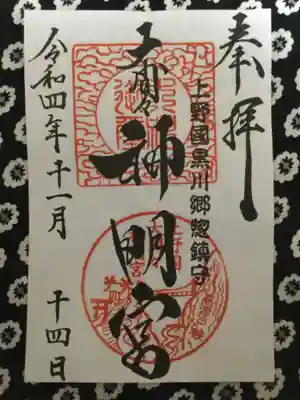 奉拝
上野國黒川郷惣鎮守
大間々神明宮
令和四年十一月十四日